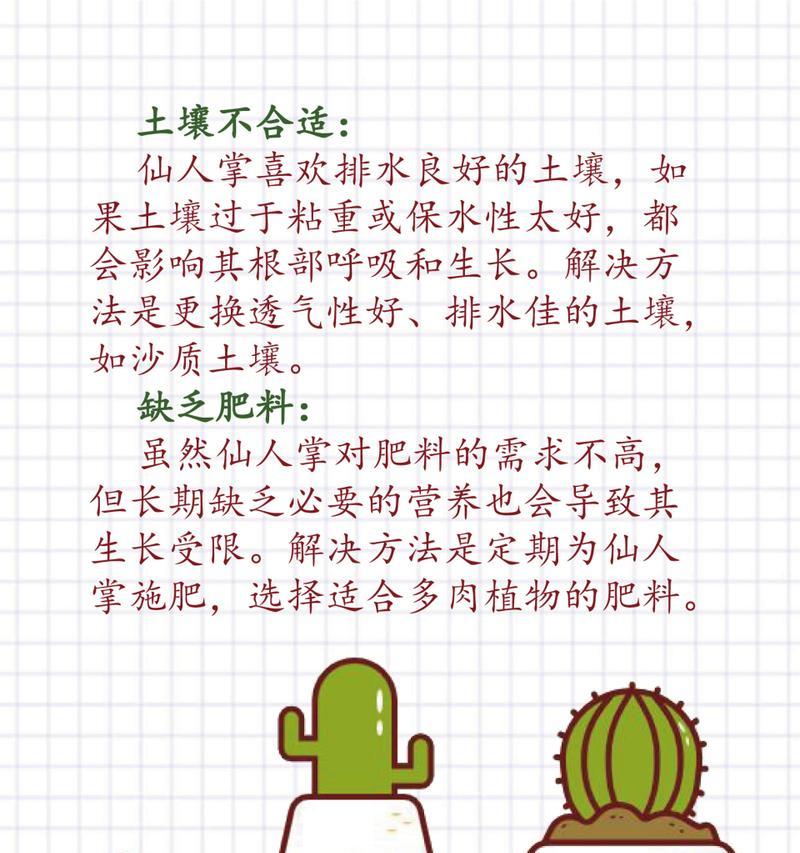 土壤不合适：
仙人掌喜欢排水良好的土壤，如
果土壤过于粘重或保水性太好，都
会影响其根部呼吸和生长。解决方
法是更换透气性好、排水佳的土壤，
如沙质土壤。
缺乏肥料：
虽然仙人掌对肥料的需求不高，
但长期缺乏必要的营养也会导致其
生长受限。解决方法是定期为仙人
掌施肥，选择适合多肉植物的肥料。